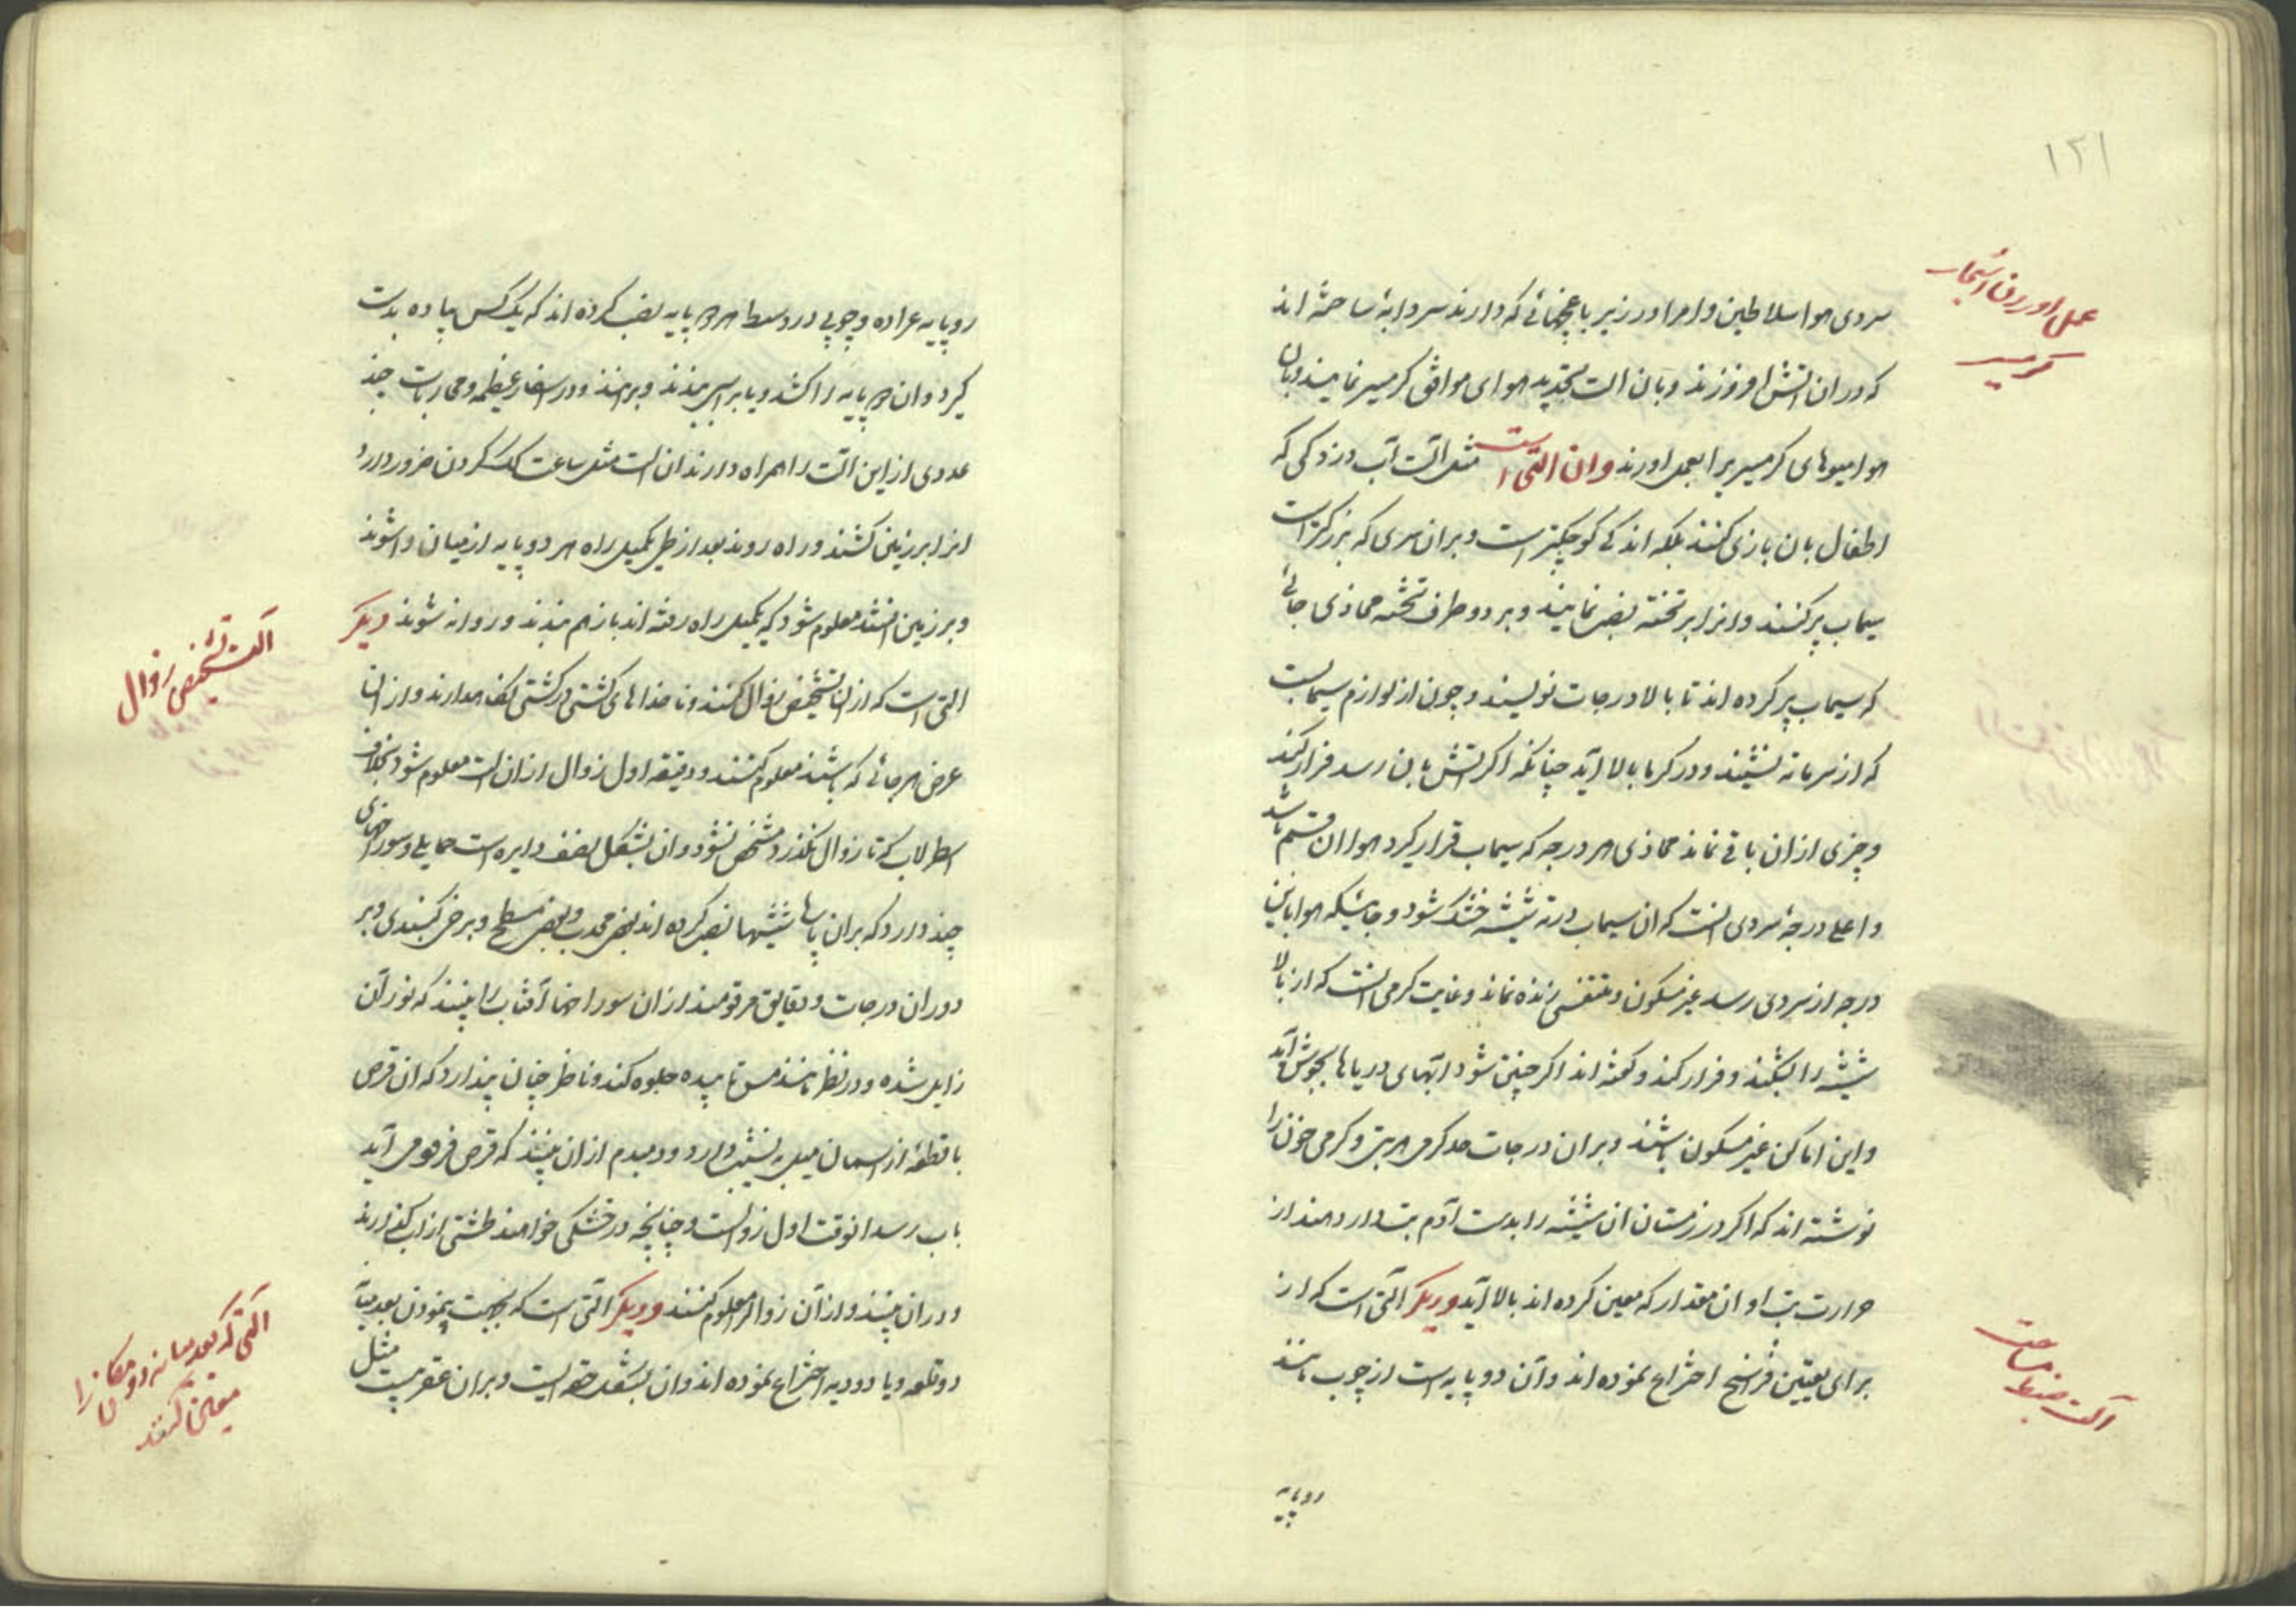 ۱۲۱
عمل اوردن اشجار
گرمسیر
سردی هوا سلاطین و امرا در زیر باغچهائی که دارند سردابهٔ ساخته اند
که در ان اتش افروزند و بان الت تجدید هوای موافق کرمسیر نمایند و بان
هوا میوهای کرمسیر را بعمل اورند و ان التی است مثل الت آب دزدکی که
اطفال بان بازی کنند بلکه اندکی کوچکتر است و بر ان سری که بزرکتر است
سیماب پر کنند و انرا بر تخته نصب نمایند و بر دو طرف تخته محاذی جائی
که سیماب پر کرده اند تا بالا درجات نویسند و چون از لوازم سیمابست
که از سرما ته نشیند و در کرما بالا آید چنانکه اگر اتش بان رسد فرار کند
و چیزی از ان باقی نماند محاذی هر درجه که سیماب قرار کیرد هوا ان قسم باشد
و اعلی درجهٔ سردی انست که ان سیماب در ته شیشه خشک شود و جائیکه هوا باین
درجه از سردی رسد غیر مسکون و متنفسی زنده نماند و غایت کرمی انست که از بالا
شیشه را بشکند و فرار کند و کفته اند اکر چنین شود ابهای دریاها بجوش آید
و این اماکن غیر مسکون باشند و بر ان درجات حد کرمی هر تب و کرمی خون را
نوشته اند که اکر در زمستان ان شیشه را بدست آدم تب دار دهند از
حرارت تب او ان مقدار که معین کرده اند بالا آید و دیکر التی است که از
برای تعیین فرسخ اختراع نموده اند و آن دو پایه است از چوب مانند
آلت ضبط مساحت
دو پایه
دو پایه عراده و چوبی در وسط هر دو پایه نصب کرده اند که یک کس پیاده بدست
کیرد و ان دو پایه را کشد و یا بر اسپ بندند و برانند و در اسفار عظیمه و محاربات چند
عددی از این الت را همراه دارند ان الت مثل ساعت کک کردن ضرور دارد
انرا بر زمین کشند و راه روند بعد از طی یکمیل راه هر دو پایه از میان وا شوند
و بر زمین افتند معلوم شود که یکمیل راه رفته اند باز هم بندند و روانه شوند دیکر
آلت تشخیص زوال
التی است که از ان تشخیص زوال کنند و ناخداهای کشتی در کشتی نکاهدارند و از ان
عرض هر جائی که باشند معلوم کنند و دقیقه اول زوال از ان الت معلوم شود بخلاف
اسطرلاب که تا زوال نکذرد مشخص نشود و ان بشکل نصف دایره است حمایلی و سوراخهای
چند دارد که بران پایها شیشها نصب کرده اند بعضی محدب و بعضی مسطح و برخی کنبدی و بر
دور ان درجات و دقایق مرقومند از ان سوراخها آفتاب را بینند که نور آن
زایل شده و در نظر مانند مس تابیده جلوه کند و ناظر چنان پندارد که ان قرص
با قطعهٔ از اسمان میل به نشیب دارد و دمبدم از ان بینند که قرص فرو می آید
باب رسد انوقت اول زوالست و چنانچه در خشکی خواهند طشتی از اب کذارند
و در ان بینند و از آن زوال معلوم کنند و دیکر التی است که بجهت پیمودن بعد میانه
دو قلعه و یا دو دیه اختراع نموده اند و ان بشکل حقه ایست و بر ان عقربیست مثل
آلتی که بعد میانه دو مکان را
معین کنند